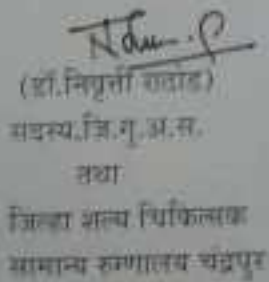 (डॉ.निवृत्ती राठोड)
सदस्य.जि.गु.अ.स.
तथा
जिल्हा शल्य चिकित्सक
सामान्य रुग्णालय चंद्रपुर